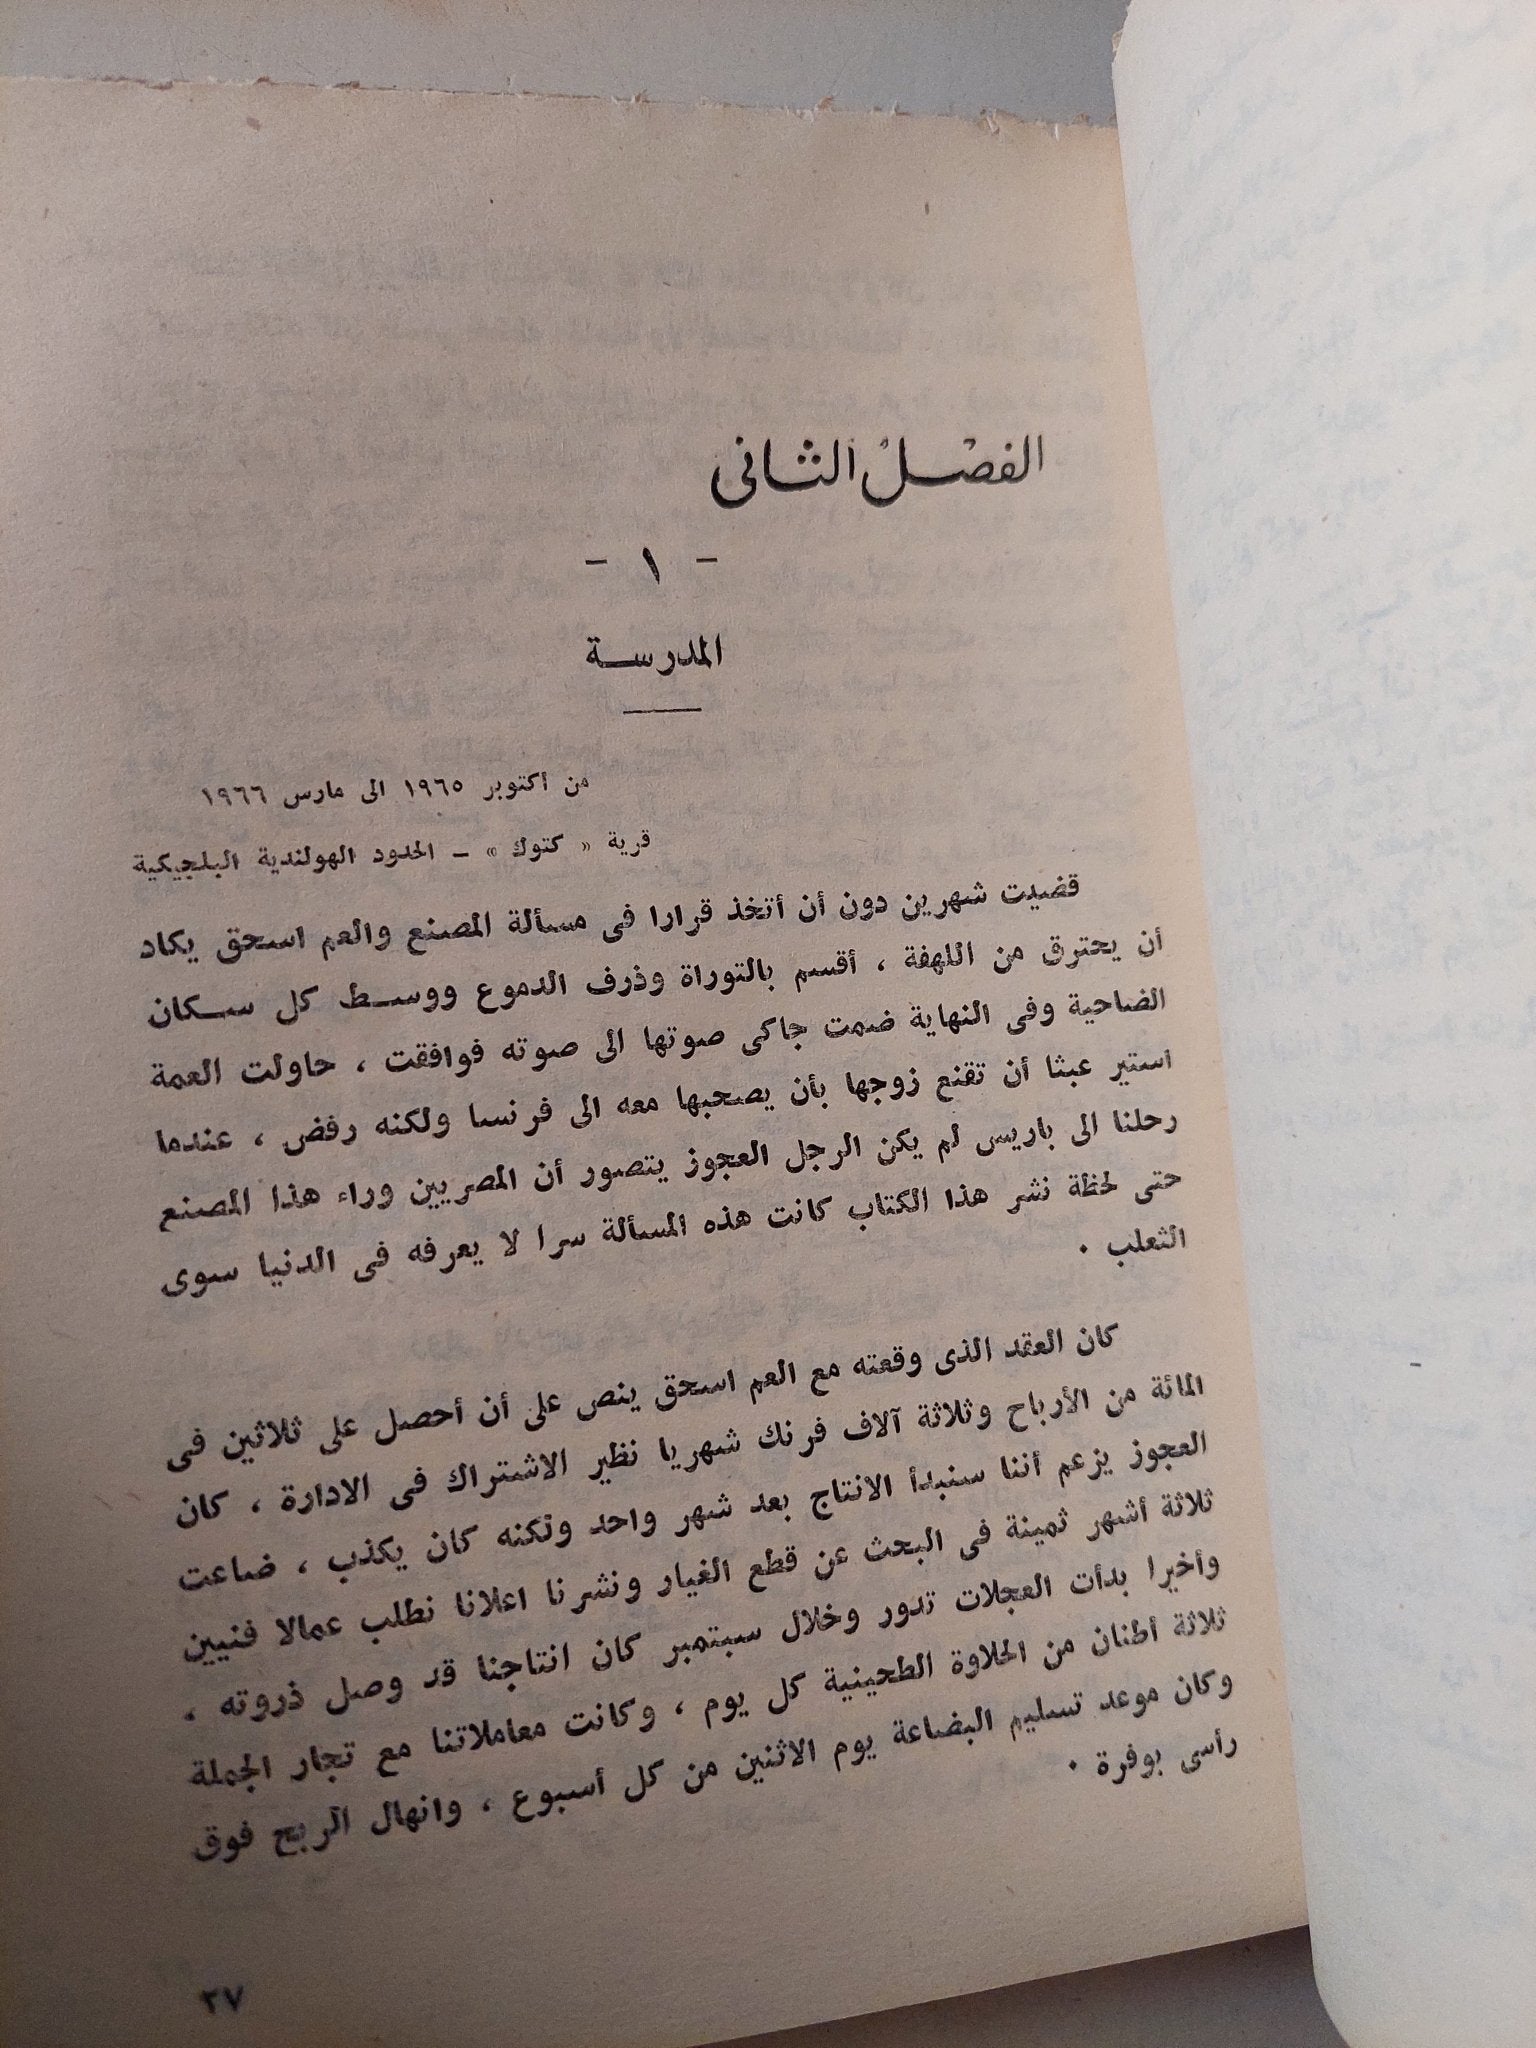 الفصل الثانى
- ١ -
المدرسة
من اكتوبر ١٩٦٥ الى مارس ١٩٦٦
قرية « كتوك » ــ الحدود الهولندية البلجيكية
قضيت شهرين دون أن أتخذ قرارا فى مسألة المصنع والعم اسحق يكاد
أن يحترق من اللهفة ، أقسم بالتوراة وذرف الدموع ووسط كل سكان
الضاحية وفى النهاية ضمت جاكى صوتها الى صوته فوافقت ، حاولت العمة
استير عبثا أن تقنع زوجها بأن يصحبها معه الى فرنسا ولكنه رفض ، عندما
رحلنا الى باريس لم يكن الرجل العجوز يتصور أن المصريين وراء هذا المصنع
حتى لحظة نشر هذا الكتاب كانت هذه المسألة سرا لا يعرفه فى الدنيا سوى
الثعلب ٠
كان العقد الذى وقعته مع العم اسحق ينص على أن أحصل على ثلاثين فى
المائة من الأرباح وثلاثة آلاف فرنك شهريا نظير الاشتراك فى الادارة ، كان
العجوز يزعم أننا سنبدأ الانتاج بعد شهر واحد ولكنه كان يكذب ، ضاعت
ثلاثة أشهر ثمينة فى البحث عن قطع الغيار ونشرنا اعلانا نطلب عمالا فنيين
وأخيرا بدأت العجلات تدور وخلال سبتمبر كان انتاجنا قد وصل ذروته ،
ثلاثة أطنان من الحلاوة الطحينية كل يوم ، وكانت معاملاتنا مع تجار الجملة
وكان موعد تسليم البضاعة يوم الاثنين من كل أسبوع ، وانهال الربح فوق
رأسى بوفرة ٠
٢٧